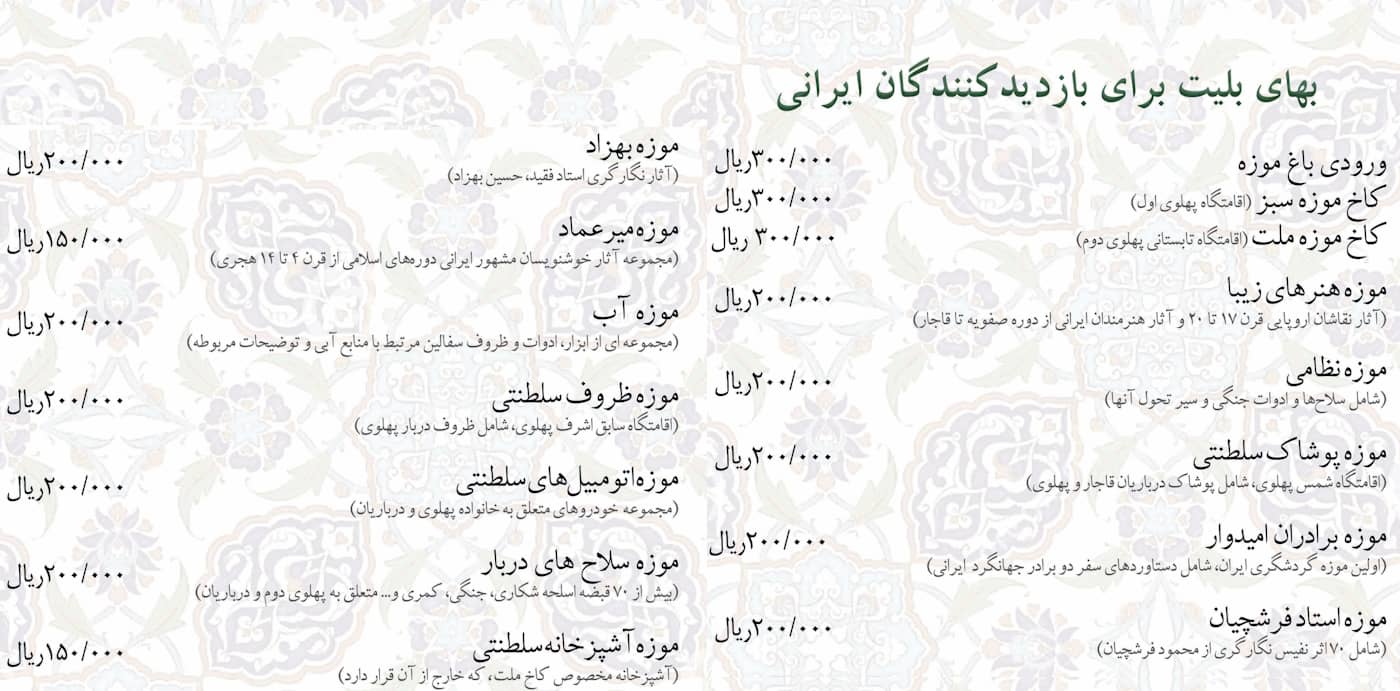 بهای بلیت برای بازدیدکنندگان ایرانی
ورودی باغ موزه ۳۰۰/۰۰۰ریال
کاخ موزه سبز (اقامتگاه پهلوی اول) ۳۰۰/۰۰۰ریال
کاخ موزه ملت (اقامتگاه تابستانی پهلوی دوم) ۳۰۰/۰۰۰ ریال
موزه هنرهای زیبا ۲۰۰/۰۰۰ریال
(آثار نقاشان اروپایی قرن ۱۷ تا ۲۰ و آثار هنرمندان ایرانی از دوره صفویه تا قاجار)
موزه نظامی ۲۰۰/۰۰۰ریال
(شامل سلاح‌ها و ادوات جنگی و سیر تحول آنها)
موزه پوشاک سلطنتی ۲۰۰/۰۰۰ریال
(اقامتگاه شمس پهلوی، شامل پوشاک درباریان قاجار و پهلوی)
موزه برادران امیدوار ۲۰۰/۰۰۰ریال
(اولین موزه گردشگری ایران، شامل دستاوردهای سفر دو برادر جهانگرد ایرانی)
موزه استاد فرشچیان ۲۰۰/۰۰۰ریال
(شامل ۷۰ اثر نفیس نگارگری از محمود فرشچیان)
موزه بهزاد ۲۰۰/۰۰۰ریال
(آثار نگارگری استاد فقید، حسین بهزاد)
موزه میرعماد ۱۵۰/۰۰۰ریال
(مجموعه آثار خوشنویسان مشهور ایرانی دوره‌های اسلامی از قرن ۴ تا ۱۴ هجری)
موزه آب ۲۰۰/۰۰۰ریال
(مجموعه ای از ابزار، ادوات و ظروف سفالین مرتبط با منابع آبی و توضیحات مربوطه)
موزه ظروف سلطنتی ۲۰۰/۰۰۰ریال
(اقامتگاه سابق اشرف پهلوی، شامل ظروف دربار پهلوی)
موزه اتومبیل‌های سلطنتی ۲۰۰/۰۰۰ریال
(مجموعه خودروهای متعلق به خانواده پهلوی و درباریان)
موزه سلاح های دربار ۲۰۰/۰۰۰ریال
(بیش از ۷۰ قبضه اسلحه شکاری، جنگی، کمری و... متعلق به پهلوی دوم و درباریان)
موزه آشپزخانه سلطنتی ۱۵۰/۰۰۰ریال
(آشپزخانه مخصوص کاخ ملت، که خارج از آن قرار دارد)